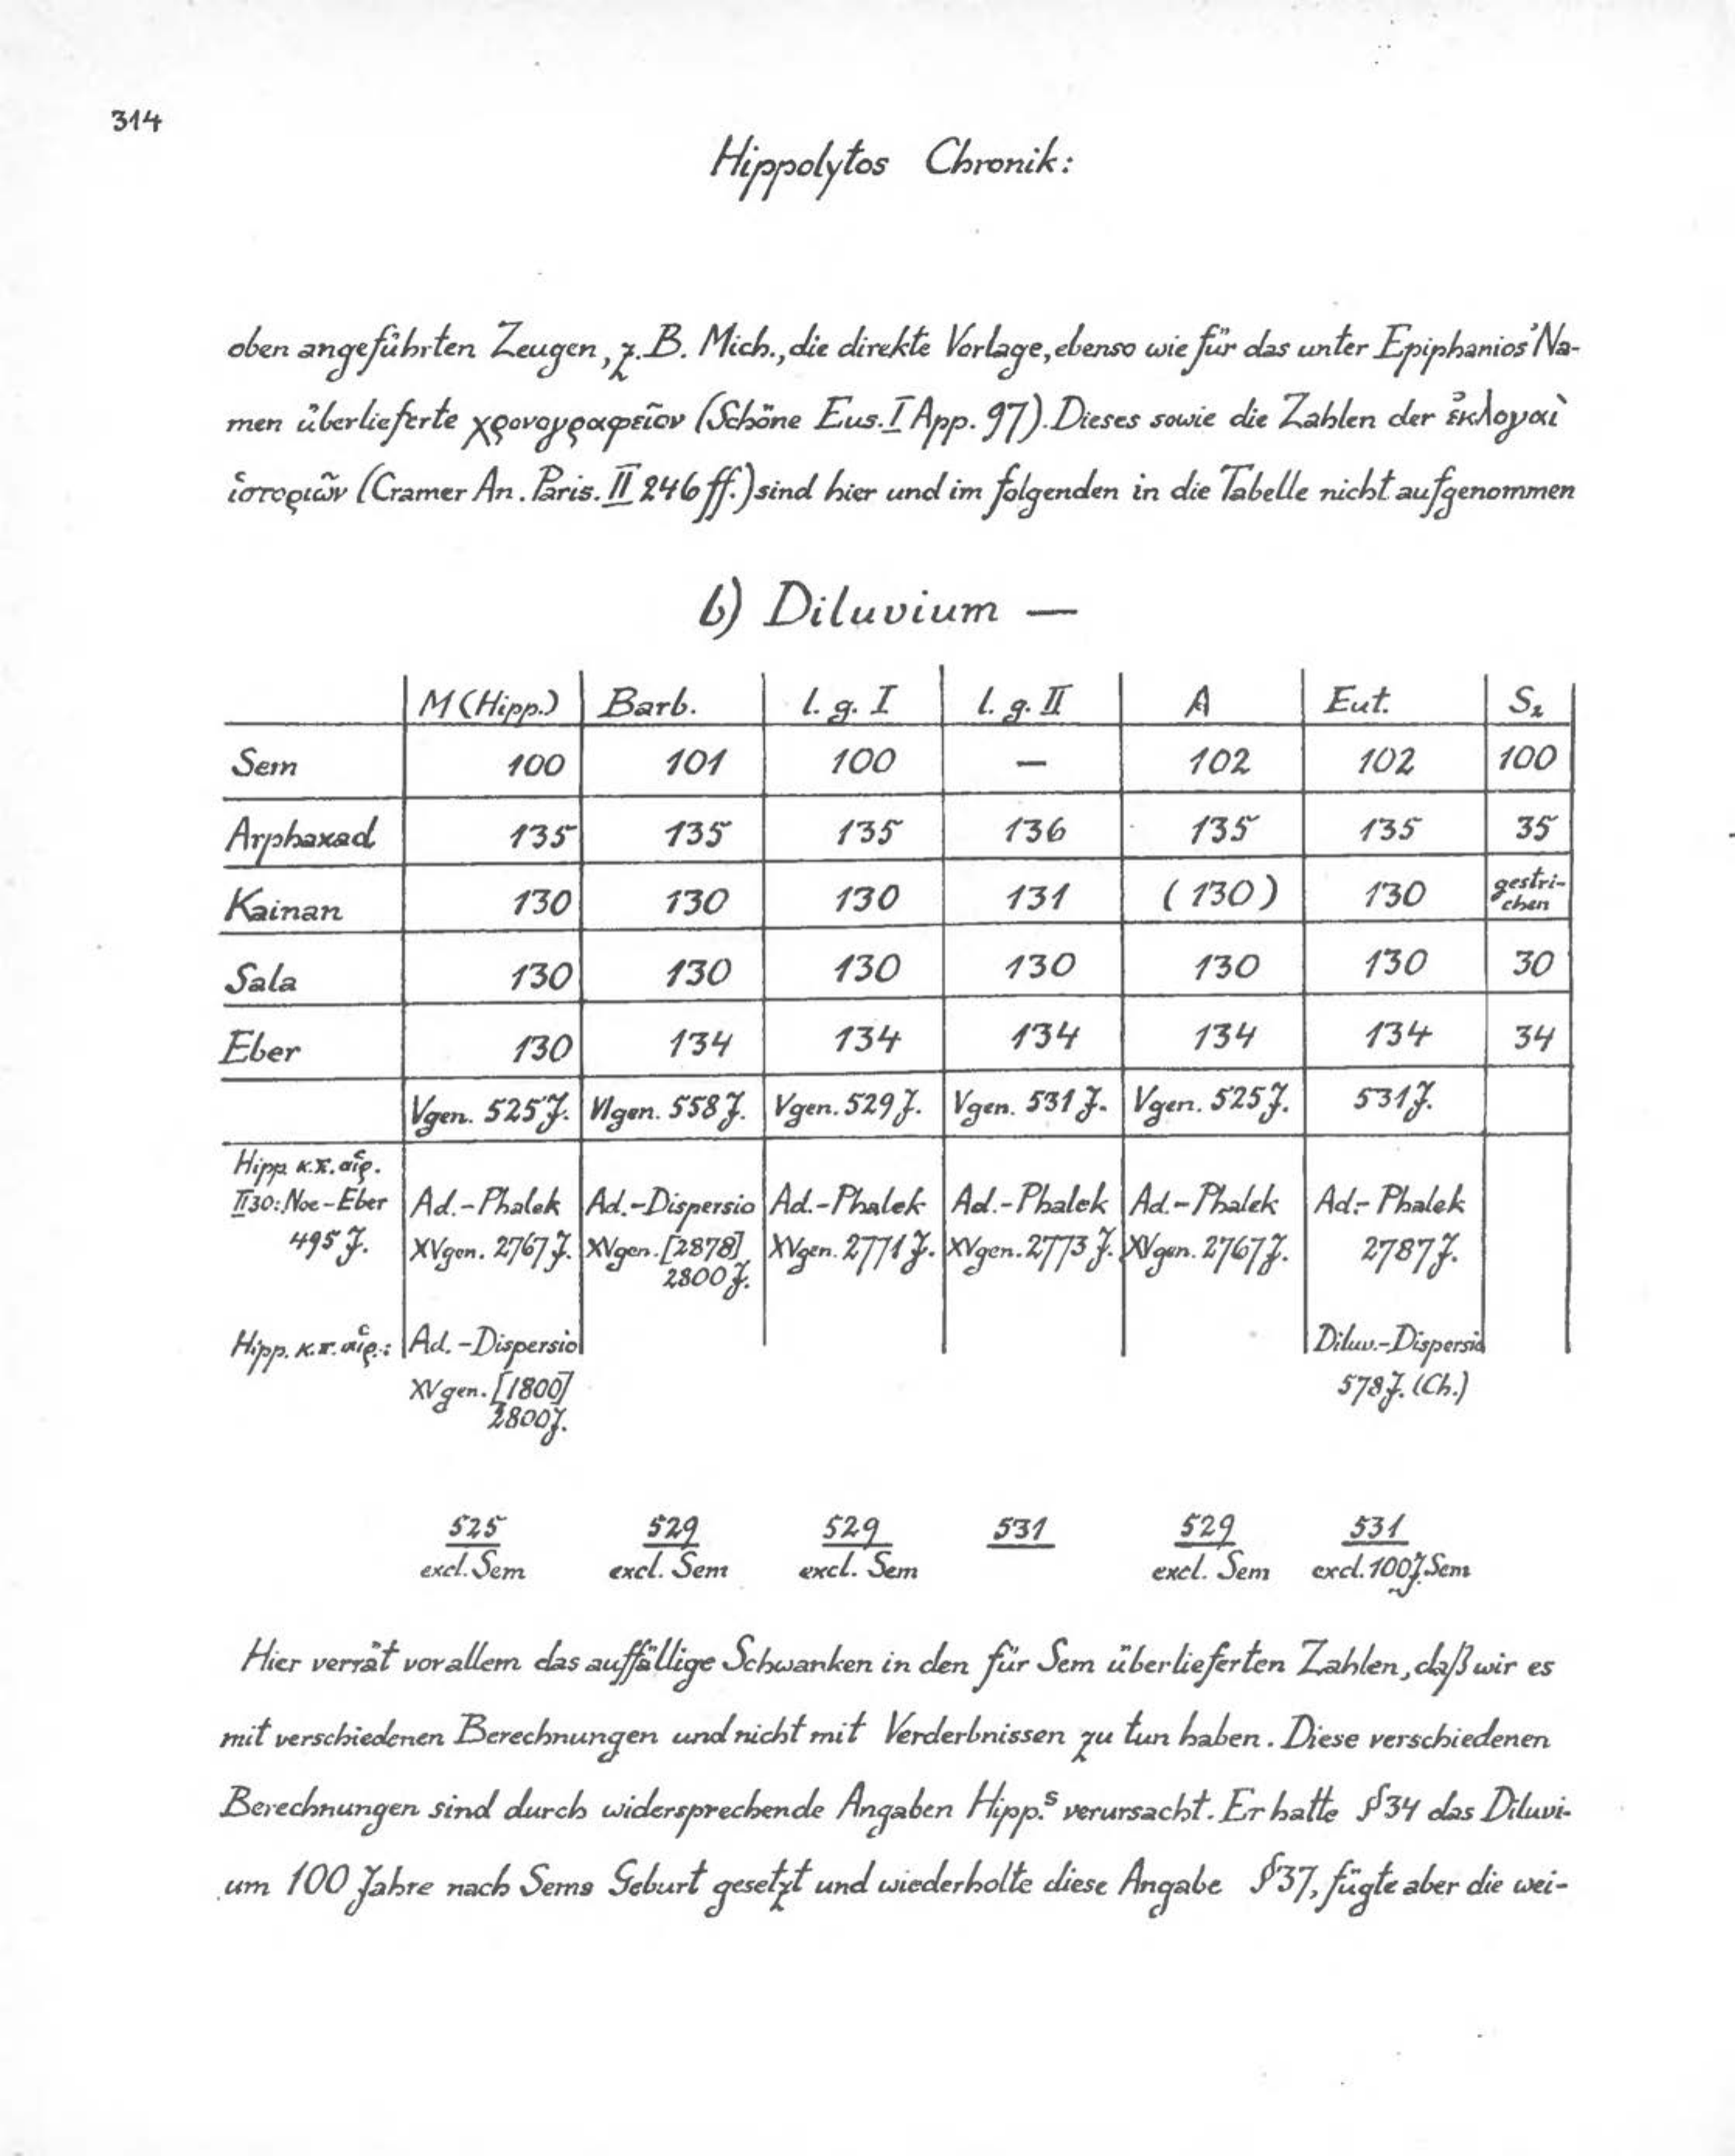 314
Hippolytos Chronik:
oben angeführten Zeugen, z.B. Mich., die direkte Vorlage, ebenso wie für das unter Epiphanios' Na-
men überlieferte χρονογραφεῖον (Schöne Eus. I App. 97). Dieses sowie die Zahlen der ἐκλογαὶ
ἱστοριῶν (Cramer An. Paris. II 246 ff.) sind hier und im folgenden in die Tabelle nicht aufgenommen
b) Diluvium —
M (Hipp.) Barb. l. g. I l. g. II A Eut. S₂
Sem 100 101 100 — 102 102 100
Arphaxad 135 135 135 136 135 135 35
Kainan 130 130 130 131 (130) 130 gestri-
chen
Sala 130 130 130 130 130 130 30
Eber 130 134 134 134 134 134 34
V gen. 525 J. VI gen. 558 J. V gen. 529 J. V gen. 531 J. V gen. 525 J. 531 J.
Hipp. κ.π. αἱρ.
II 30: Noe-Eber Ad.-Phalek Ad.-Dispersio Ad.-Phalek Ad.-Phalek Ad.-Phalek Ad.-Phalek
495 J. XV gen. 2767 J. XV gen. [2878] XV gen. 2771 J. XV gen. 2773 J. XV gen. 2767 J. 2787 J.
2800 J.
Hipp. κ.π. αἱρ.: Ad.-Dispersio Diluv.-Dispersio
XV gen. [1800] 578 J. (Ch.)
2800 J.
525 529 529 531 529 531
excl. Sem excl. Sem excl. Sem excl. Sem excl. 100 J. Sem
Hier verrät vor allem das auffällige Schwanken in den für Sem überlieferten Zahlen, daß wir es
mit verschiedenen Berechnungen und nicht mit Verderbnissen zu tun haben. Diese verschiedenen
Berechnungen sind durch widersprechende Angaben Hipp.s verursacht. Er hatte §34 das Diluvi-
um 100 Jahre nach Sems Geburt gesetzt und wiederholte diese Angabe §37, fügte aber die wei-